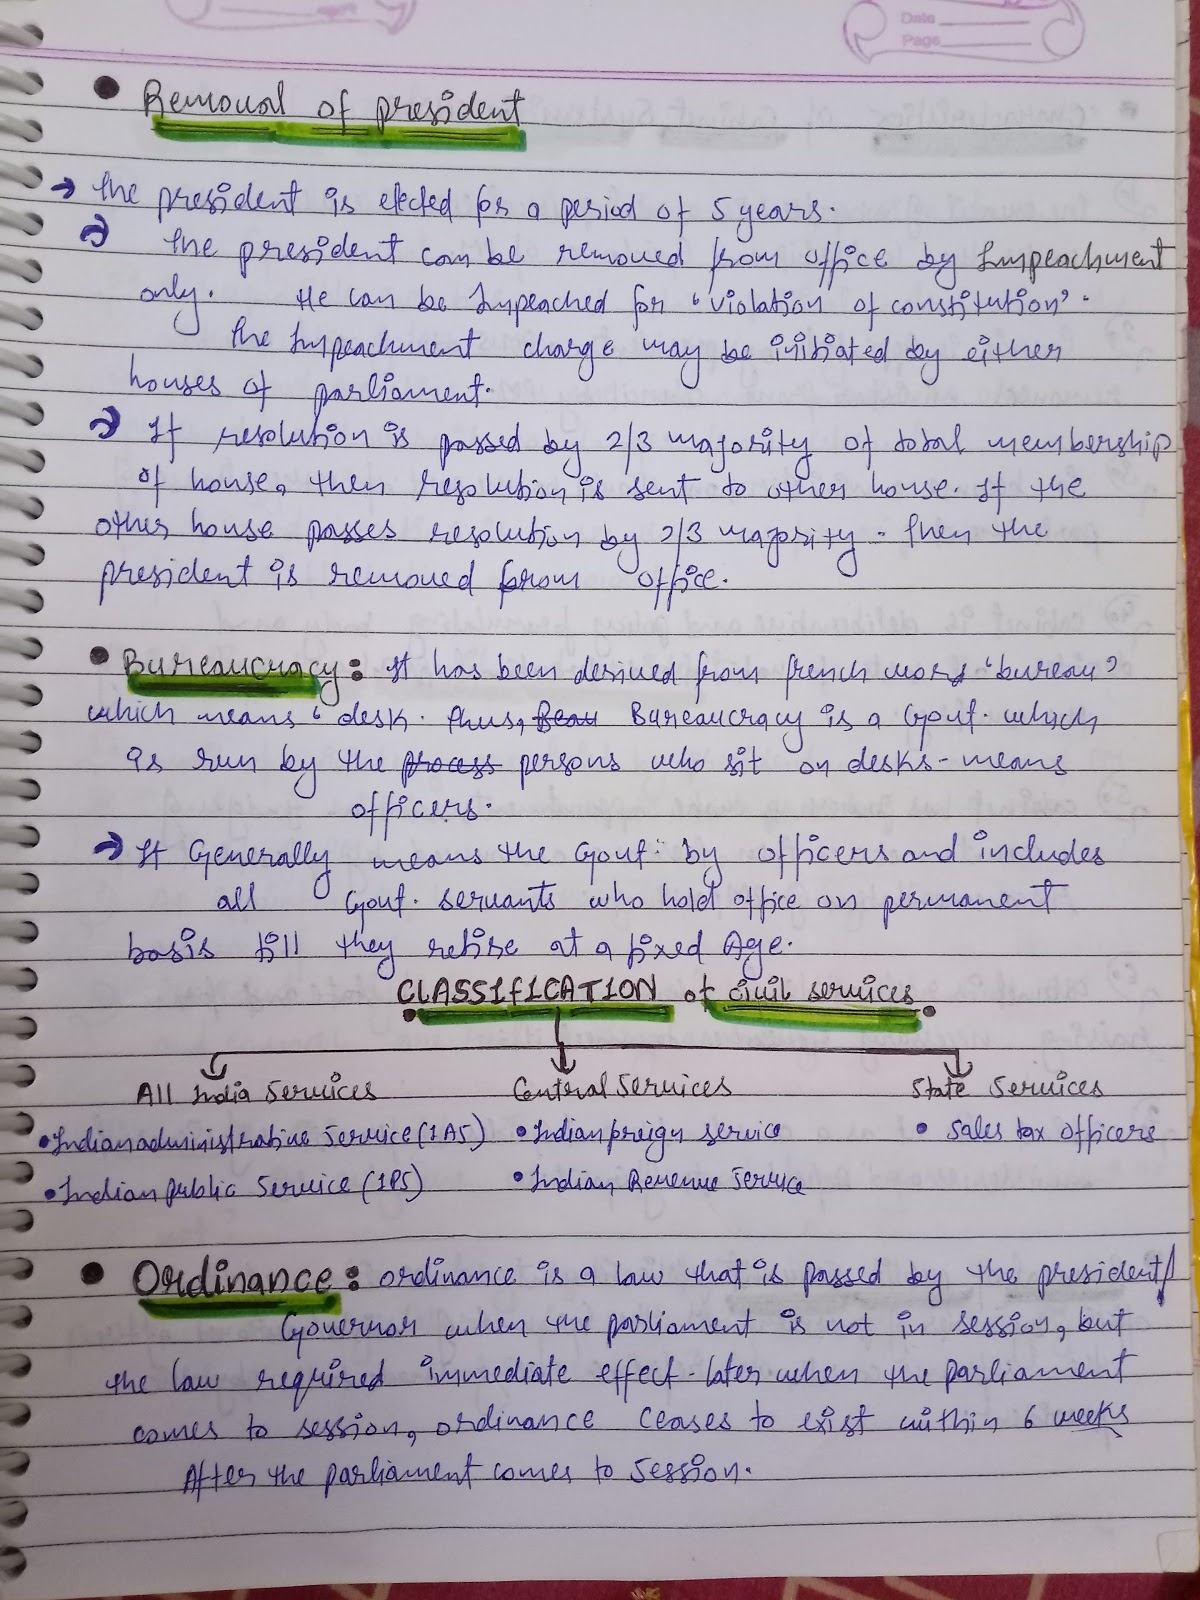 Date
Page
Removal of president
→ the president is elected for a period of 5 years.
→ The president can be removed from office by Impeachment
only. He can be Impeached for 'violation of constitution'.
The Impeachment charge may be initiated by either
houses of parliament.
→ If resolution is passed by 2/3 majority of total membership
of house, then resolution is sent to other house. If the
other house passes resolution by 2/3 majority - then the
president is removed from office.
• Bureaucracy: It has been derived from french word 'bureau'
which means 'desk. Thus, Beau Bureaucracy is a Govt. which
is run by the process persons who sit on desks - means
officers.
→ It Generally means the Govt. by officers and includes
all Govt. servants who hold office on permanent
basis till they retire at a fixed Age.
CLASSIFICATION of civil services.
All India Services Central Services State Services
• Indian administrative Service (IAS) • Indian foreign service • Sales tax officers
• Indian public Service (IPS) • Indian Revenue Service
• Ordinance: ordinance is a law that is passed by the president/
Governor when the parliament is not in session, but
the law required immediate effect. later when the parliament
comes to session, ordinance ceases to exist within 6 weeks
After the parliament comes to session.